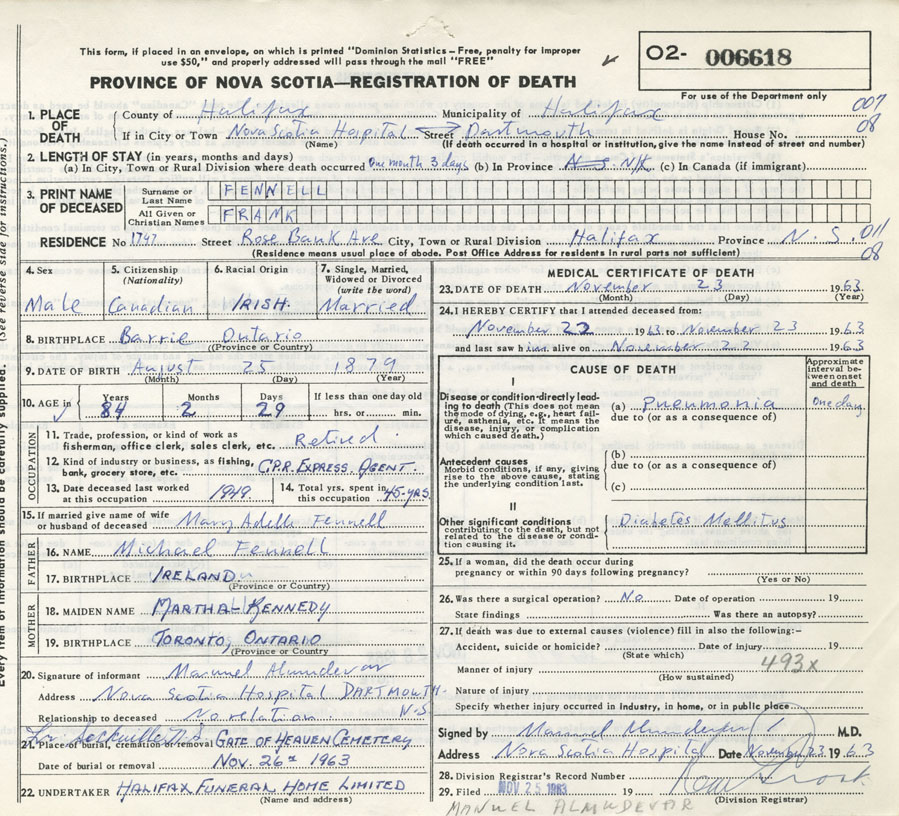 This form, if placed in an envelope, on which is printed "Dominion Statistics - Free, penalty for improper
use $50," and properly addressed will pass through the mail "FREE"
O2- 006618
PROVINCE OF NOVA SCOTIA—REGISTRATION OF DEATH
For use of the Department only
1. PLACE OF DEATH
County of Halifax Municipality of Halifax 007
If in City or Town Nova Scotia Hospital Street Dartmouth House No. 08
(Name) (If death occurred in a hospital or institution, give the name instead of street and number)
2. LENGTH OF STAY (in years, months and days)
(a) In City, Town or Rural Division where death occurred One month 3 days (b) In Province N.S. N/K (c) In Canada (if immigrant)
3. PRINT NAME OF DECEASED
Surname or Last Name FENNELL
All Given or Christian Names FRANK
RESIDENCE No 1747 Street Rose Bank Ave City, Town or Rural Division Halifax Province N.S. 011
(Residence means usual place of abode. Post Office Address for residents in rural parts not sufficient) 08
4. Sex
Male
5. Citizenship (Nationality)
Canadian
6. Racial Origin
IRISH
7. Single, Married, Widowed or Divorced (write the word)
Married
8. BIRTHPLACE Barrie Ontario
(Province or Country)
9. DATE OF BIRTH August 25 1879
(Month) (Day) (Year)
10. AGE in
Years Months Days If less than one day old
84 2 29 hrs. or min.
OCCUPATION
11. Trade, profession, or kind of work as
fisherman, office clerk, sales clerk, etc. Retired
12. Kind of industry or business, as fishing,
bank, grocery store, etc. C.P.R. EXPRESS AGENT.
13. Date deceased last worked
at this occupation 1949
14. Total yrs. spent in
this occupation 45-YRS
15. If married give name of wife
or husband of deceased Mary Adelle Fennell
FATHER
16. NAME Michael Fennell
17. BIRTHPLACE IRELAND
(Province or Country)
MOTHER
18. MAIDEN NAME MARTHA KENNEDY
19. BIRTHPLACE TORONTO, ONTARIO
(Province or Country)
20. Signature of informant Manuel Almudevar
Address Nova Scotia Hospital DARTMOUTH
Relationship to deceased No relation N.S
Lr. Sackville N.S.
21. Place of burial, cremation or removal GATE OF HEAVEN CEMETERY
Date of burial or removal NOV. 26th 1963
22. UNDERTAKER HALIFAX FUNERAL HOME LIMITED
(Name and address)
MEDICAL CERTIFICATE OF DEATH
23. DATE OF DEATH November 23 1963
(Month) (Day) (Year)
24. I HEREBY CERTIFY that I attended deceased from:
November 22 1963 to November 23 1963
and last saw him alive on November 22 1963
CAUSE OF DEATH
Approximate interval between onset and death
I
Disease or condition directly leading to death (This does not mean the mode of dying, e.g., heart failure, asthenia, etc. It means the disease, injury, or complication which caused death.)
(a) Pneumonia One day
due to (or as a consequence of)
Antecedent causes
Morbid conditions, if any, giving rise to the above cause, stating the underlying condition last.
(b)
due to (or as a consequence of)
(c)
II
Other significant conditions
contributing to the death, but not related to the disease or condition causing it.
Diabetes Mellitus
25. If a woman, did the death occur during
pregnancy or within 90 days following pregnancy?
(Yes or No)
26. Was there a surgical operation? No. Date of operation 19
State findings Was there an autopsy?
27. If death was due to external causes (violence) fill in also the following:-
Accident, suicide or homicide? Date of injury 19
(State which)
493x
Manner of injury
(How sustained)
Nature of injury
Specify whether injury occurred in industry, in home, or in public place
Signed by Manuel Almudevar M.D.
Address Nova Scotia Hospital Date November 23 1963
28. Division Registrar's Record Number
29. Filed NOV 25 1963 19
(Division Registrar)
MANUEL ALMUDEVAR
Every item of information should be carefully supplied. (See reverse side for instructions.)